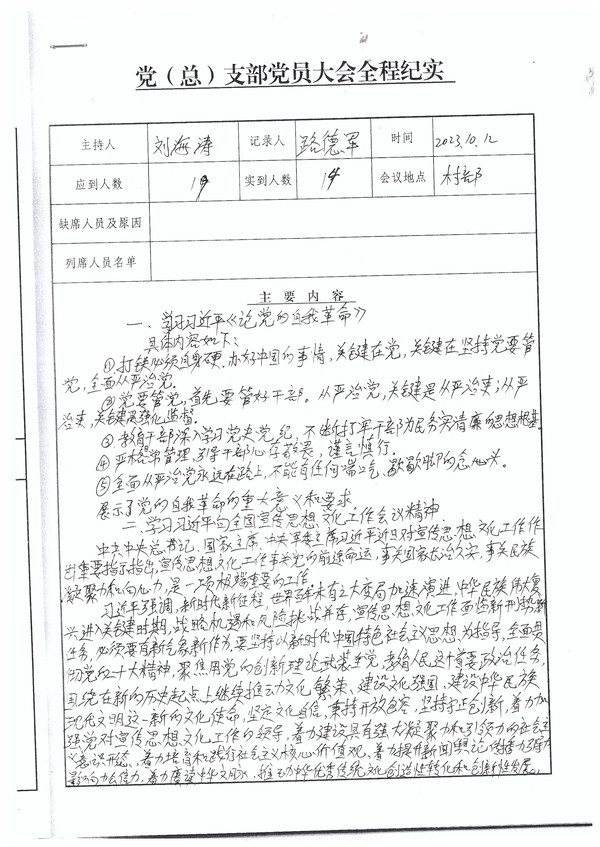 党（总）支部党员大会全程纪实
主持人 刘海涛 记录人 路德军 时间 2023.10.12
应到人数 19 实到人数 14 会议地点 村部
缺席人员及原因
列席人员名单
主要内容
一、学习习近平《论党的自我革命》
具体内容如下：
①打铁必须自身硬，办好中国的事情，关键在党，关键在坚持党要管
党，全面从严治党。
②党要管党，首先要管好干部。从严治党，关键是从严治吏；从严
治吏，关键是强化监督。
③教育干部深入学习党史党纪，不断打牢干部为民务实清廉的思想根基
④严格日常管理，引导干部心存敬畏，谨言慎行。
⑤全面从严治党永远在路上，不能有任何喘口气、歇歇脚的念头。
展示了党的自我革命的重大意义和要求。
二、学习习近平向全国宣传思想文化工作会议精神
中共中央总书记、国家主席、中央军委主席习近平近日对宣传思想文化工作作
出重要指示指出，宣传思想文化工作事关党的前途命运，事关国家长治久安，事关民族
凝聚力和向心力，是一项极端重要的工作。
习近平强调，新时代新征程，世界百年未有之大变局加速演进，中华民族伟大复
兴进入关键时期，战略机遇和风险挑战并存，宣传思想文化工作面临新形势新
任务，必须要有新气象新作为。要坚持以新时代中国特色社会主义思想为指导，全面贯
彻党的二十大精神，聚焦用党的创新理论武装全党、教育人民这个首要政治任务，
围绕在新的历史起点上继续推动文化繁荣、建设文化强国、建设中华民族
现代文明这一新的文化使命，坚定文化自信，秉持开放包容，坚持守正创新，着力加
强党对宣传思想文化工作的领导，着力建设具有强大凝聚力和引领力的社会主
义意识形态，着力培育和践行社会主义核心价值观，着力提升新闻舆论传播力引导力
影响力公信力，着力赓续中华文脉、推动中华优秀传统文化创造性转化和创新性发展，